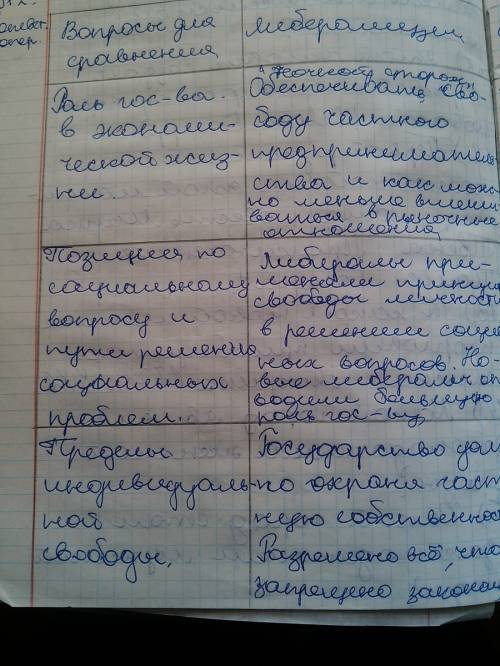 Вопросы для
сравнения
либерализм
Роль гос-ва
в экономи-
ческой жиз-
ни
"ночного сторожа"
Обеспечивать сво-
боду частного
предприниматель
ства и как мож
но меньше вмеши
ваться в рыночные
отношения
Позиция по
социальному
вопросу и
пути решения
социальных
проблем.
Либералы при-
меняли принцип
свободы личности
в решении соци
ных вопросов. Но-
вые либералы от
водили большую
роль гос-ву
Пределы
индивидуаль-
ной
свободы.
Государство дол
но охраня част
ную собственнос
Разрешено всё, что
запрещено законом